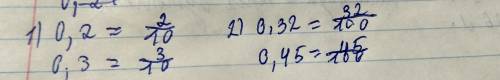 1) 0,2 = 2/10   2) 0,32 = 32/100
0,3 = 3/10   0,45 = 45/100